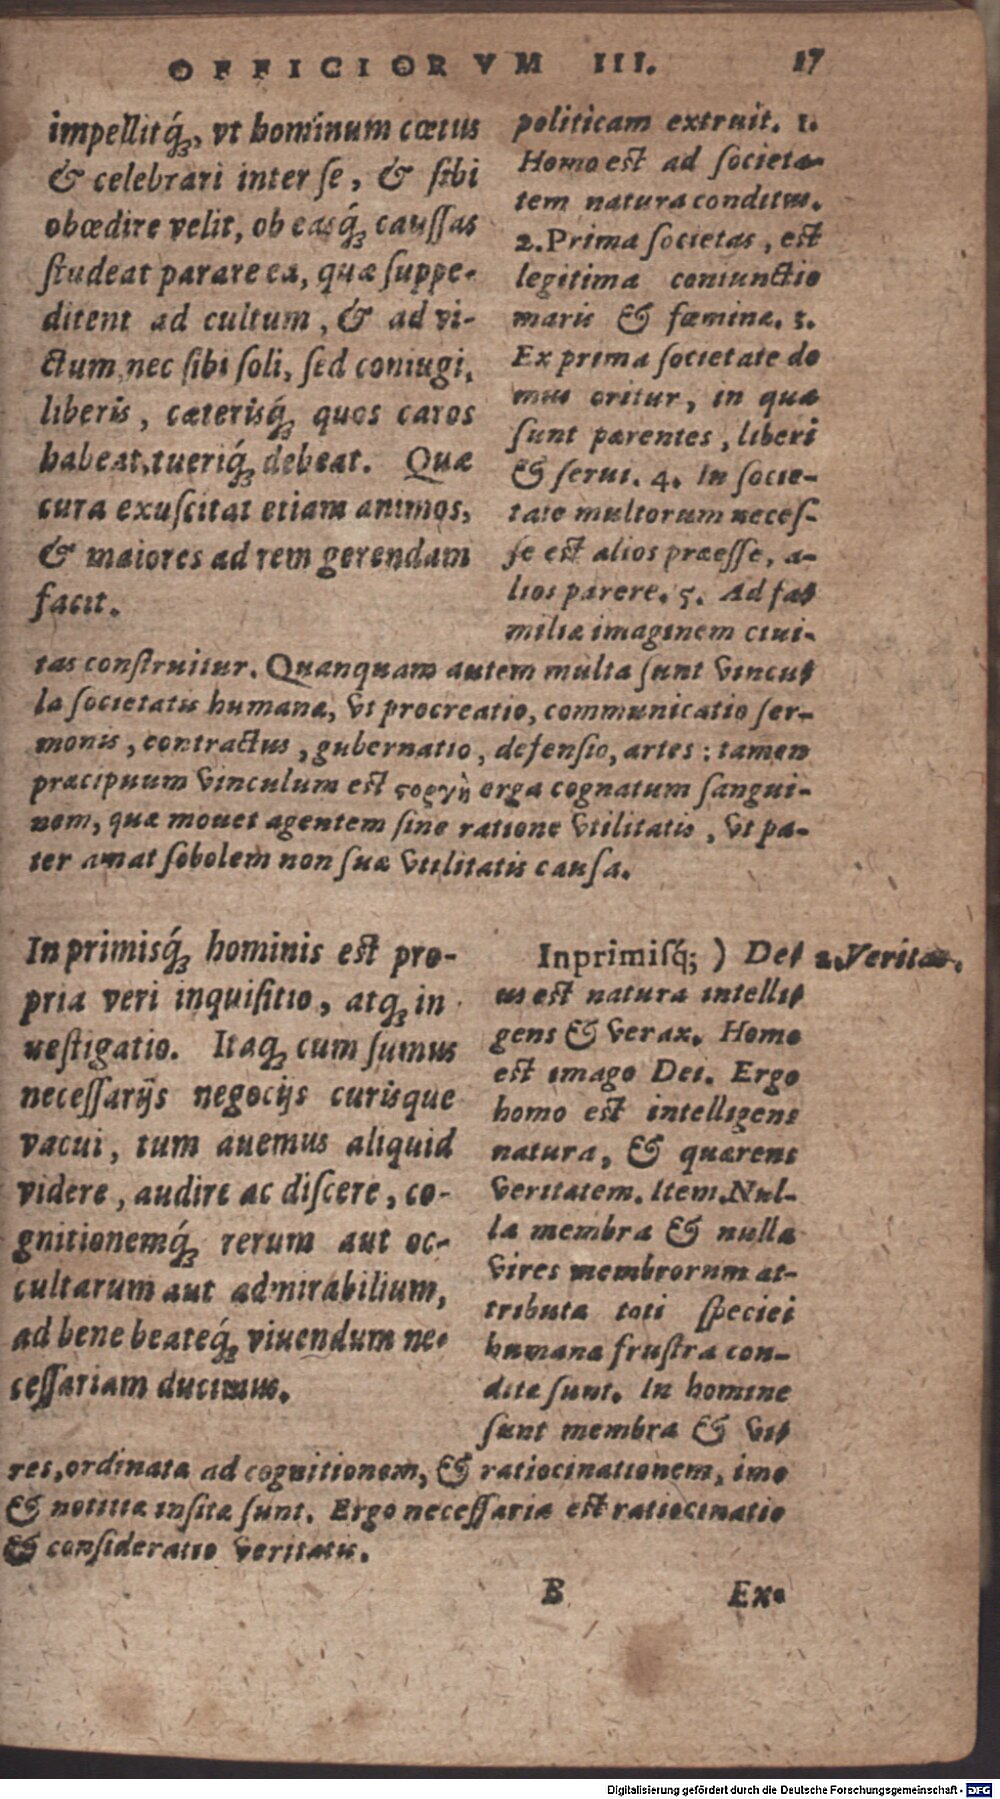 OFFICIORVM III. 17
impellitq́ꝫ, vt hominum cœtus
& celebrari inter se, & sibi
obœdire velit, ob easq́ꝫ caussas
studeat parare ea, quæ suppe-
ditent ad cultum, & ad vi-
ctum, nec sibi soli, sed coniugi,
liberis, cæterisq́ꝫ quos caros
habeat, tueriq́ꝫ debeat. Quæ
cura exuscitat etiam animos,
& maiores ad rem gerendam
facit.
politicam extruit. 1.
Homo est ad societa-
tem natura conditus.
2. Prima societas, est
legitima coniunctio
maris & fœminæ. 3.
Ex prima societate do
mus oritur, in qua
sunt parentes, liberi
& serui. 4. In socie-
tate multorum neces-
se est alios præesse, a-
lios parere. 5. Ad fa-
miliæ imaginem ciui-
tas construitur. Quanquam autem multa sunt vincu-
la societatis humanæ, vt procreatio, communicatio ser-
monis, contractus, gubernatio, defensio, artes: tamen
præcipuum vinculum est ϛοργὴ erga cognatum sangui-
nem, quæ mouet agentem sine ratione vtilitatis, vt pa-
ter amat sobolem non suæ vtilitatis causa.
Inprimisq́ꝫ hominis est pro-
pria veri inquisitio, atqꝫ in
uestigatio. Itaqꝫ cum sumus
necessarijs negocijs curisque
vacui, tum auemus aliquid
videre, audire ac discere, co-
gnitionemq́ꝫ rerum aut oc-
cultarum aut admirabilium,
ad bene beateq́ꝫ viuendum ne-
cessariam ducimus.
Inprimisq́;) De-
us est natura intelli-
gens & verax. Homo
est imago Dei. Ergo
homo est intelligens
natura, & quærens
veritatem. Item. Nul-
la membra & nulla
vires membrorum at-
tributa toti speciei
humanæ frustra con-
dita sunt. In homine
sunt membra & vi-
res, ordinata ad cognitionem, & ratiocinationem, imo
& notitiæ insitæ sunt. Ergo necessaria est ratiocinatio
& consideratio veritatis.
2. Veritas.
B Ex-
Digitalisierung gefördert durch die Deutsche Forschungsgemeinschaft - DFG